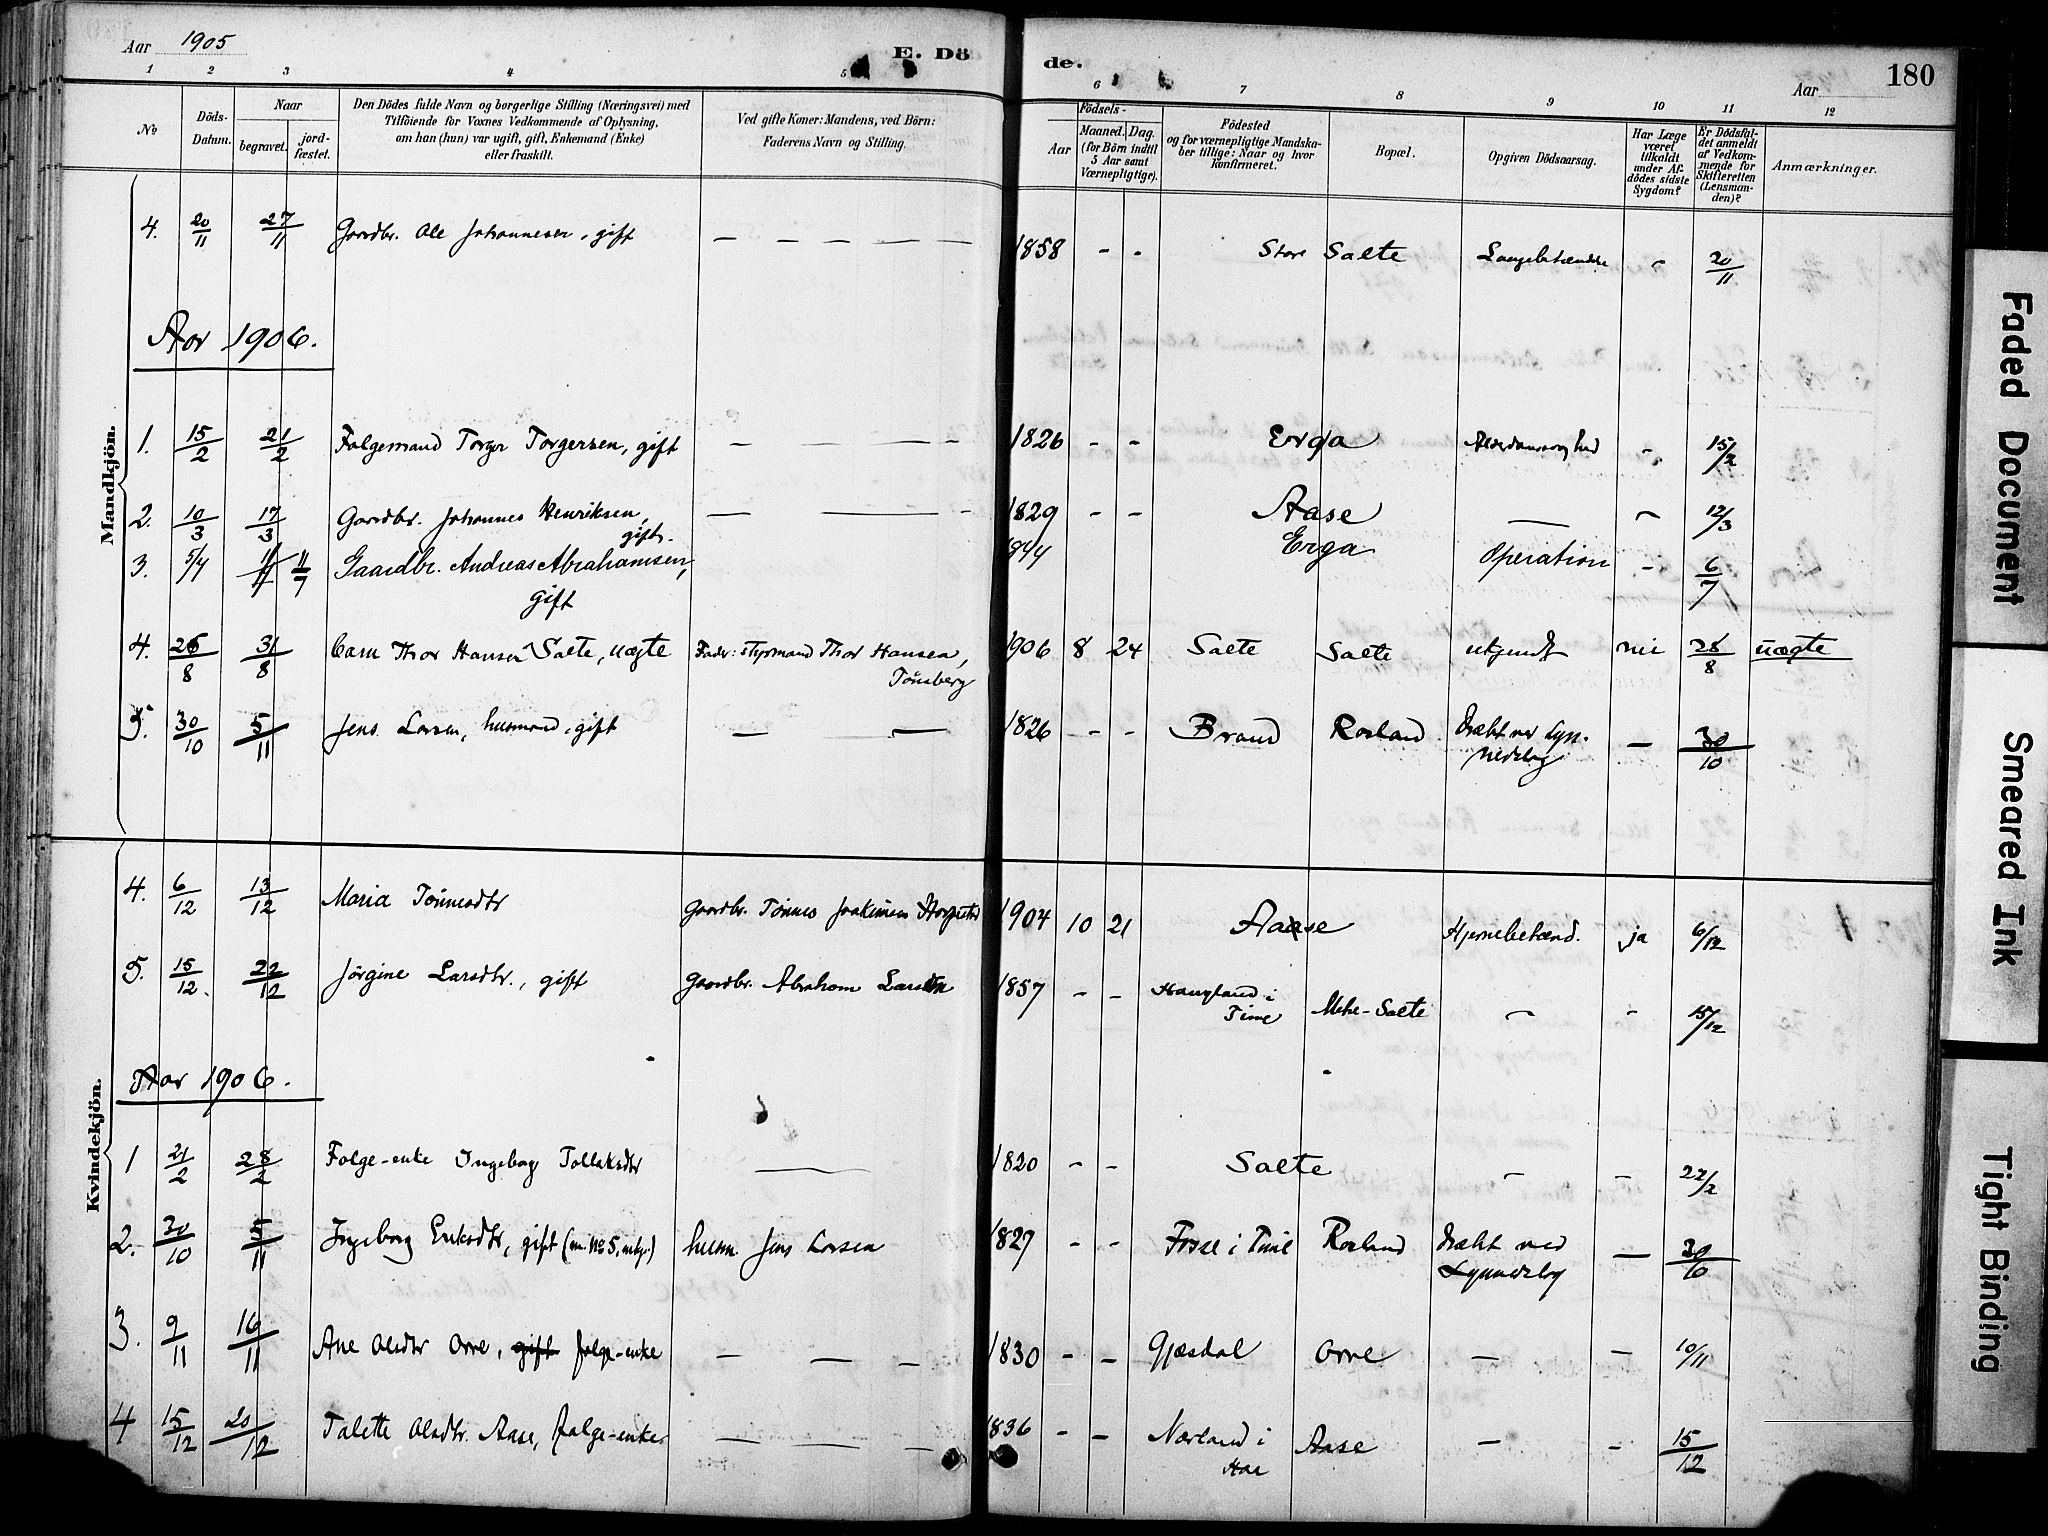 Aar 1905
E. Dö
de.
Aar
180
1 2 3 4 5 6 7 8 9 10 11 12
No
Döds-Datum.
Naar
begravet.
jord-fæstet.
Den Dödes fulde Navn og borgerlige Stilling (Næringsvei) med
Tilföiende for Voxnes Vedkommende af Oplysning,
om han (hun) var ugift, gift, Enkemand (Enke)
eller fraskilt.
Ved gifte Koner: Mandens, ved Börn:
Faderens Navn og Stilling.
Födsels-
Aar
Maaned. Dag.
(for Börn indtil
5 Aar samt
Værnepligtige).
Födested
og for værnepligtige Mandska-
ber tillige: Naar og hvor
konfirmeret.
Bopæl.
Opgiven Dödsaarsag.
Har Læge
været
tilkaldt
under Af-
dödes sidste
Sygdom?
Er Dödsfal-
det anmeldt
af Vedkom-
mende for
Skifteretten
(Lensman-
den)?
Anmærkninger.
Mandkjön.
4. 20/11 27/11 Gaardbr. Ole Johannesen, gift — — — — — 1858 - - Store Salte Lungebetændelse - 20/11
Aar 1906.
1. 15/2 21/2 Folgemand Torger Torgersen, gift — — — 1826 - - Erga Alderdomssvaghed - 15/2
2. 10/3 17/3 Gaardbr. Johannes Henriksen, gift. — — — 1829 - - Aase — - 12/3
3. 5/7 11/7 11/7 Gaardbr. Andreas Abrahamsen, gift 1844 Erga Operation - 6/7
4. 26/8 31/8 Carn Thor Hansen Salte, uægte Fader: styrmand Thor Hansen, Tønsberg 1906 8 24 Salte Salte ukjendt nei 28/8 uægte
5. 30/10 5/11 Jens Larsen, husmand, gift — — 1826 - - Braud Rosland Dræbt ved Lyn-nedslag — 30/10
Kvindekjön.
4. 6/12 13/12 Maria Tønnesdtr Gaardbr. Tønnes Joakimsen 1904 10 21 Aase Hjernebetænd. ja 6/12
5. 15/12 22/12 Jørgine Larsdtr., gift Gaardbr. Abraham Larsen 1857 - - Haugland i Time Salte - - 15/12
Aar 1906.
1 21/2 28/2 Folge-enke Ingeborg Tollaksdtr — 1820 - - Salte - - 22/2
2. 30/10 5/11 Ingeborg Eriksdtr, gift (m. No 5, mkj.) husm. Jens Larsen 1827 - - Fosse i Time Rosland Dræbt ved Lynnedslag — 30/10
3. 9/11 16/11 Ane Olsdtr Orre, gift folge-enke — — — 1830 - - Gjæsdal Orre — - 10/11
4 15/12 20/12 Talette Olsdtr. Aase, folge-enke — — — 1836 - - Nærland i Haa Aase — - 15/12
Faded Document
Smeared Ink
Tight Binding